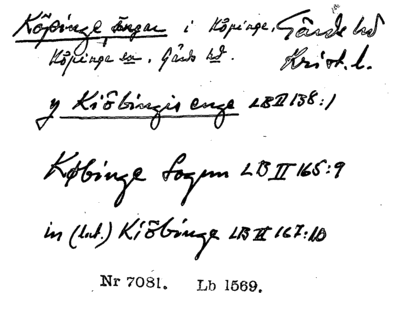 Köpinge, i Köpinge, Gärds hd
Köpinge sn, Gärds hd. Krist. l.
y Kiöbingis enge LB II 138:1
Købinge Sognn LB II 165:9
in (lat.) Kiöbinge LB II 167:10
Nr 7081. Lb 1569.